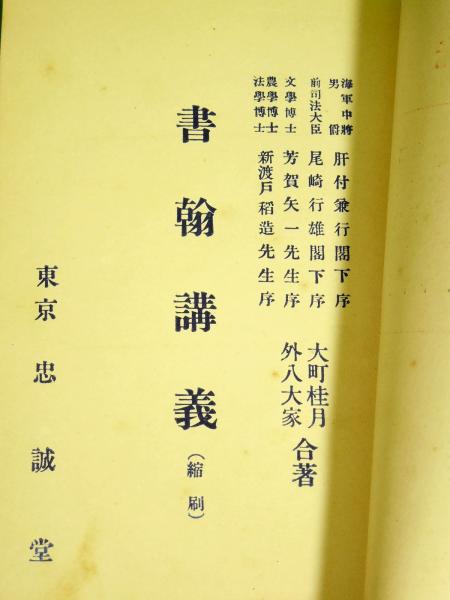 海軍中將 男爵 肝付兼行閣下序
前司法大臣 尾崎行雄閣下序
文學博士 芳賀矢一先生序
農學博士 法學博士 新渡戸稻造先生序
大町桂月
外八大家
合著
書翰講義(縮刷)
東京 忠誠堂